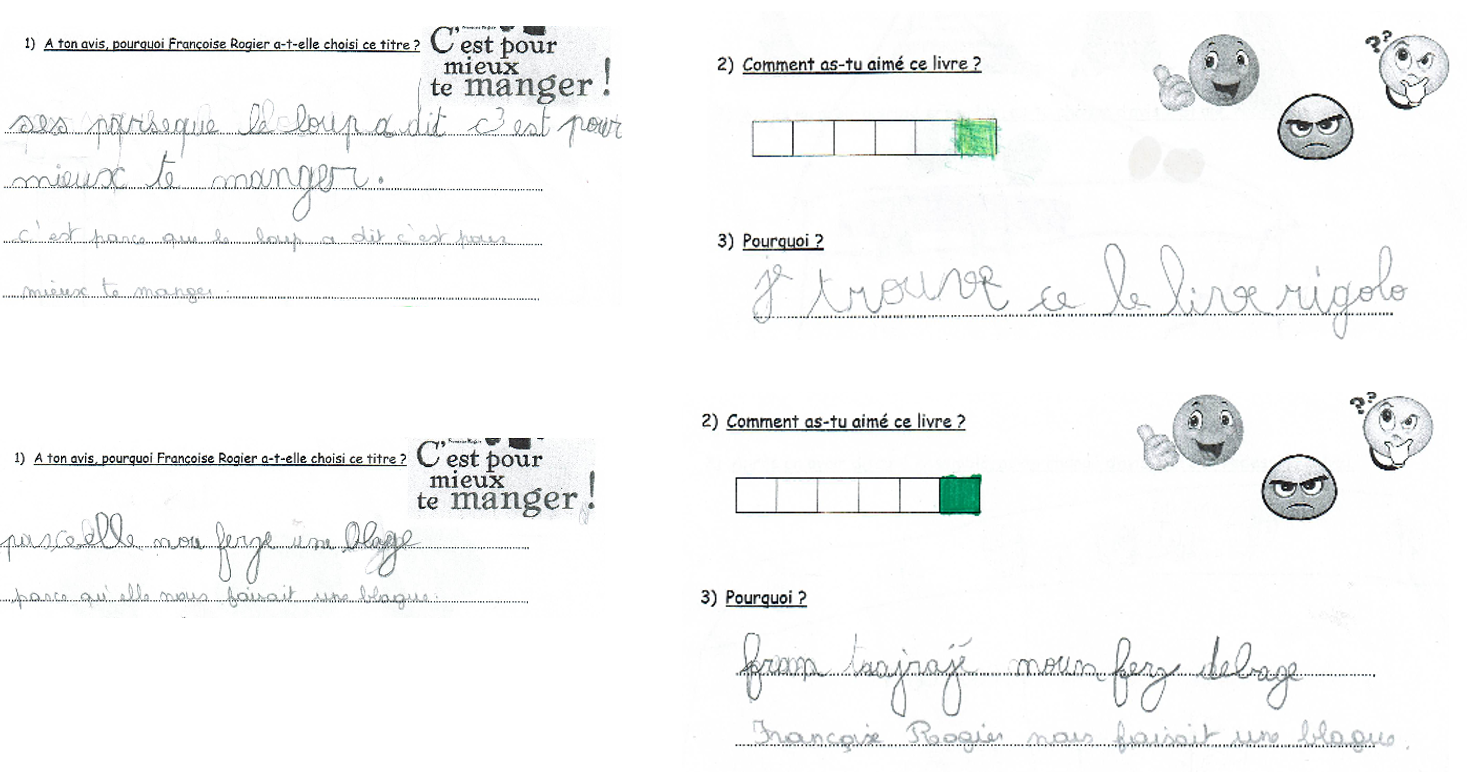 1) A ton avis, pourquoi Françoise Rogier a-t-elle choisi ce titre ?
C'est pour
mieux
te manger !
ses parseque le loup a dit c'est pour
mieux te manger.
c'est parce que le loup a dit c'est pour
mieux te manger.
2) Comment as-tu aimé ce livre ?
??
3) Pourquoi ?
je trouve ce le livre rigolo
1) A ton avis, pourquoi Françoise Rogier a-t-elle choisi ce titre ?
C'est pour
mieux
te manger !
parceelle nou ferze une blage
parce qu'elle nous faisait une blague.
2) Comment as-tu aimé ce livre ?
??
3) Pourquoi ?
debage
Françoise Roogier nous faisait une blague.